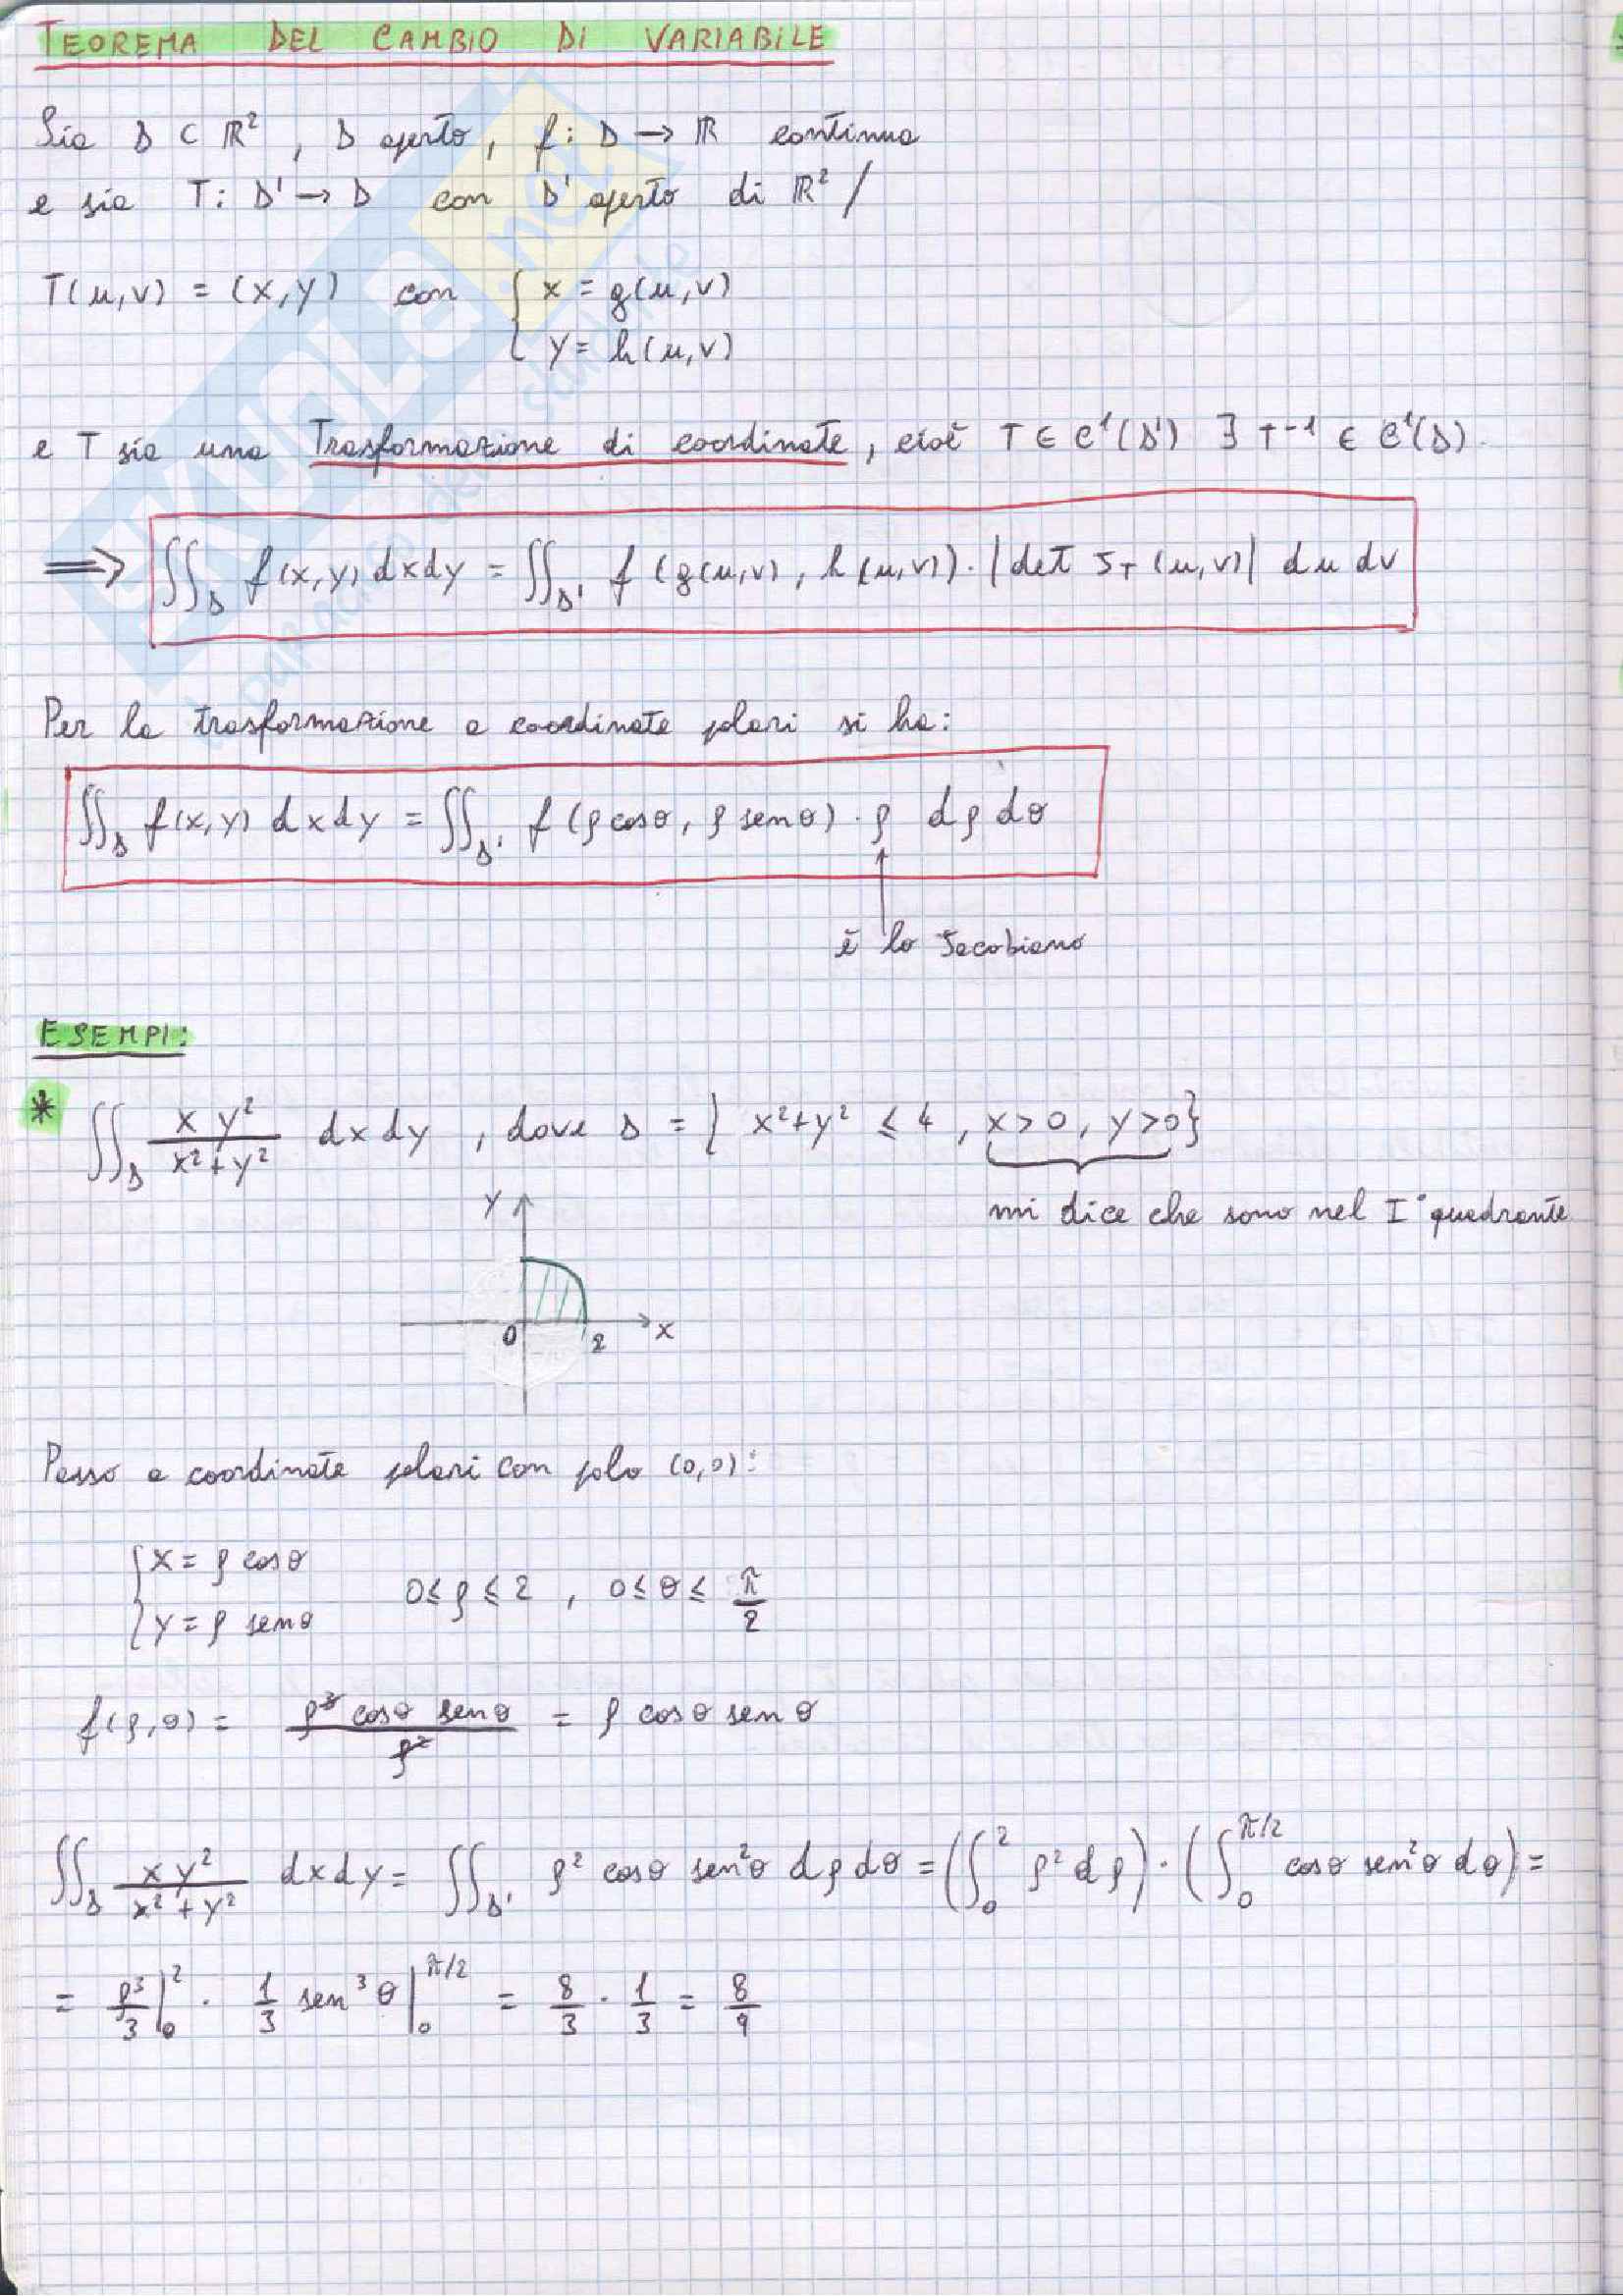 TEOREMA DEL CAMBIO DI VARIABILE
Sia D ⊂ ℝ², D aperto, f: D → ℝ continua
e sia T: D' → D con D' aperto di ℝ² /
T(u,v) = (x,y) con { x = g(u,v)
y = h(u,v)
e T sia una Trasformazione di coordinate, cioè T ∈ C¹(D') ∃ T⁻¹ ∈ C¹(D).
⟹ ∬_D f(x,y) dxdy = ∬_D' f(g(u,v), h(u,v)) · |det J_T (u,v)| du dv
Per la trasformazione a coordinate polari si ha:
∬_D f(x,y) dxdy = ∬_D' f(ρ cosθ, ρ senθ) · ρ dρ dθ
è lo Jacobiano
ESEMPI:
* ∬_D xy²/(x²+y²) dxdy, dove D = { x²+y² ≤ 4, x>0, y>0}
mi dice che sono nel I° quadrante
y
0 2 x
Passo a coordinate polari con polo (0,0):
{ x = ρ cosθ
y = ρ senθ 0 ≤ ρ ≤ 2, 0 ≤ θ ≤ π/2
f(ρ,θ) = ρ³ cosθ senθ / ρ² = ρ cosθ senθ
∬_D xy²/(x²+y²) dxdy = ∬_D' ρ² cosθ sen²θ dρdθ = (∫₀² ρ² dρ) · (∫₀^π/2 cosθ sen²θ dθ) =
= ρ³/3 |₀² · 1/3 sen³θ |₀^π/2 = 8/3 · 1/3 = 8/9